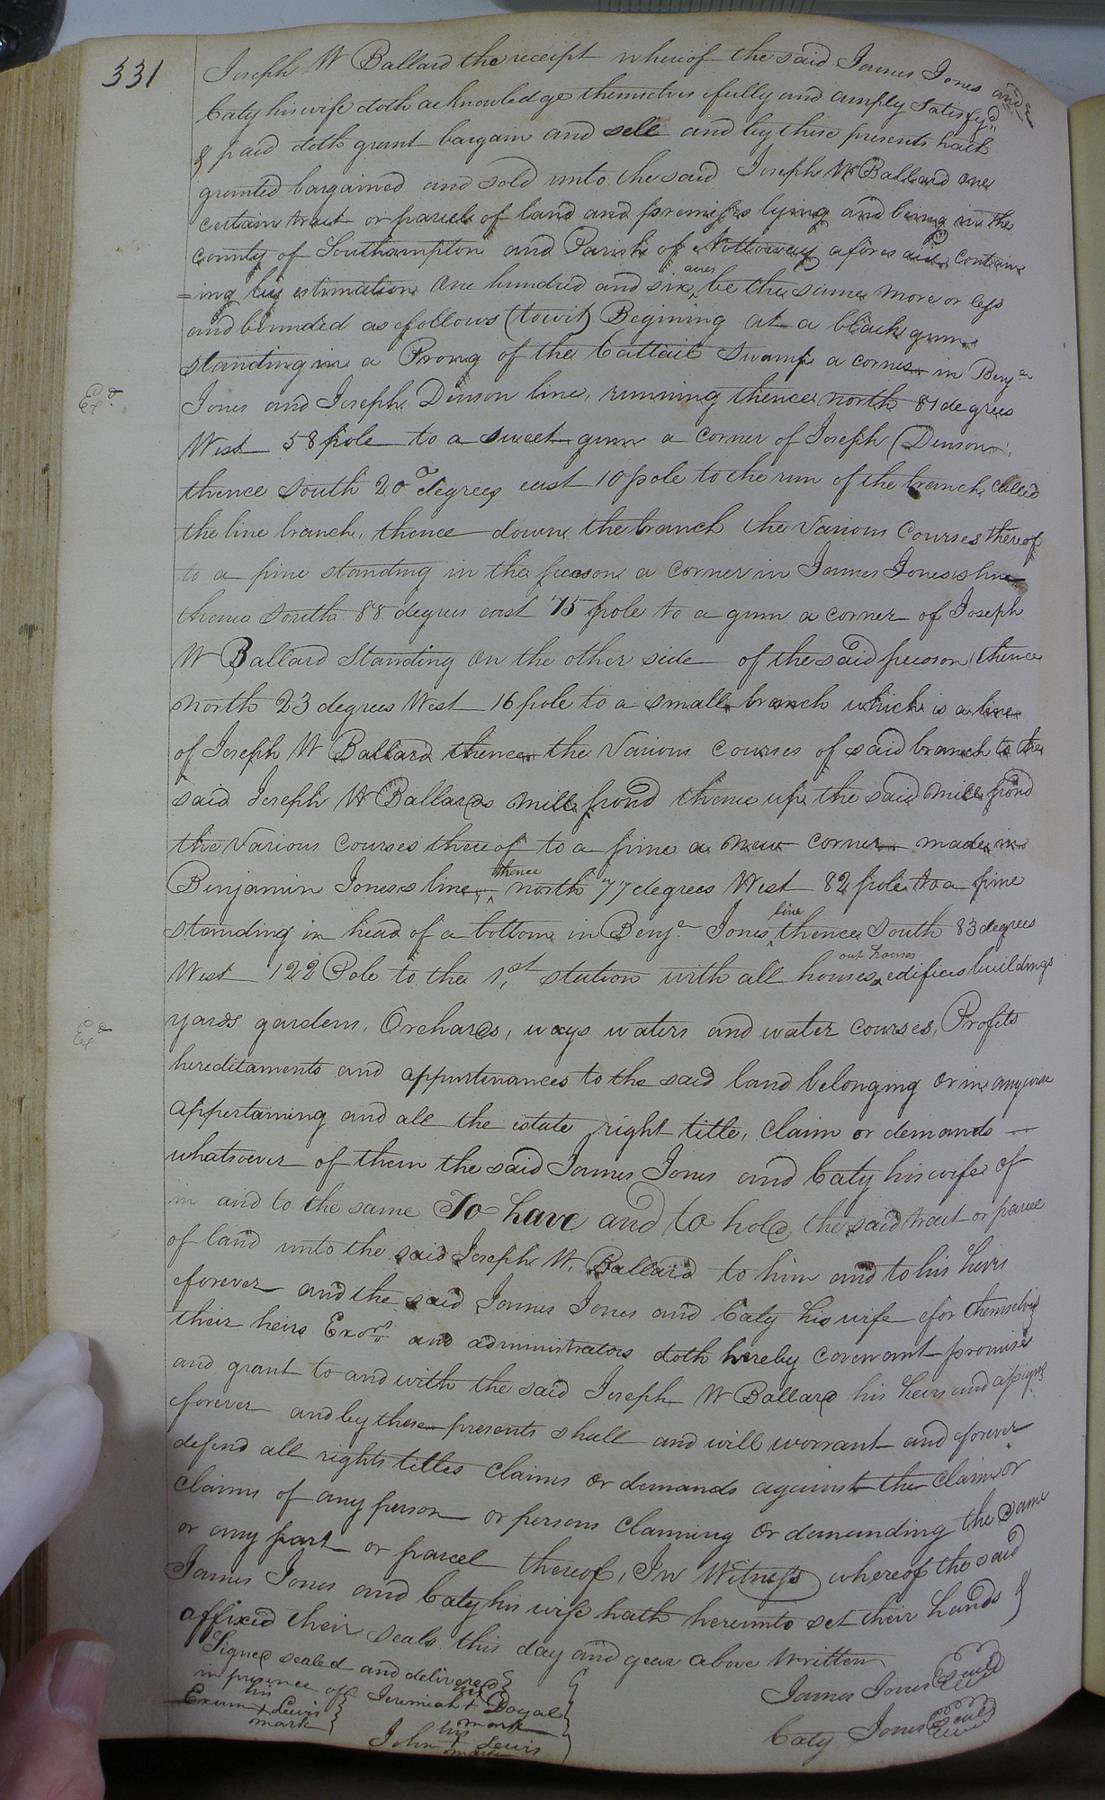 331
Joseph W Ballard the receipt whereof the said James Jones and
Caty his wife doth acknowledge themselves fully and amply satisfy'd
& paid doth grant bargain and sell and by these presents hath
granted bargained and sold unto the said Joseph W Ballard one
certain tract or parcel of land and premises lying and being in the
county of Southampton and Parish of Nottoway aforesaid contain
=ing by estimation One hundred and six acres be the same more or less
and bounded as follows (towit) Begining at a black gum
standing in a Prong of the Cattail Swamp a corner in Benja
Exd
Jones and Joseph Denson line, running thence north 81 degrees
West 58 pole to a sweet gum a corner of Joseph Denson,
thence South 20 degrees east 10 pole to the run of the branch called
the line branch, thence down the branch the Various Courses thereof
to a pine standing in the pecoson a corner in James Jones's line
thence South 88 degrees east 75 pole to a gum a corner of Joseph
W Ballard Standing on the other side of the said pecoson thence
North 23 degrees West 16 pole to a small branch which is a line
of Joseph W Ballard thence the Various courses of said branch to the
said Joseph W Ballards Mill pond thence up the said Mill pond
the Various courses thereof to a pine a new corner made in
Benjamin Jones's line, thence north 77 degrees West 82 pole to a pine
standing in head of a bottom in Benja Jones line thence South 83 degrees
West 122 Pole to the 1st station with all houses out houses edifices buildings
Exd
yards gardens, Orchards, ways waters and water courses, Profits
hereditaments and appurtenances to the said land belonging or in anywise
appertaining and all the estate right title, claim or demands
whatsoever of them the said James Jones and Caty his wife of
in and to the same To have and to hold the said tract or parcel
of land unto the said Joseph W. Ballard to him and to his heirs
forever and the said James Jones and Caty his wife for themselves
their heirs Exors and administrators doth hereby covenant promise
and grant to and with the said Joseph W Ballard his heirs and assigns
forever and by these presents shall and will warrant and forever
defend all rights titles claims or demands against the claim or
claims of any person or persons claiming or demanding the same
or any part or parcel thereof, In Witness whereof the said
James Jones and Caty his wife hath hereunto set their hands &
affixed their seals this day and year above written
Signed sealed and delivered
in presence of Jeremiah his + mark
James Jones Seal
Exum his + mark Lewis
John his + mark Lewis
Caty Jones Seal